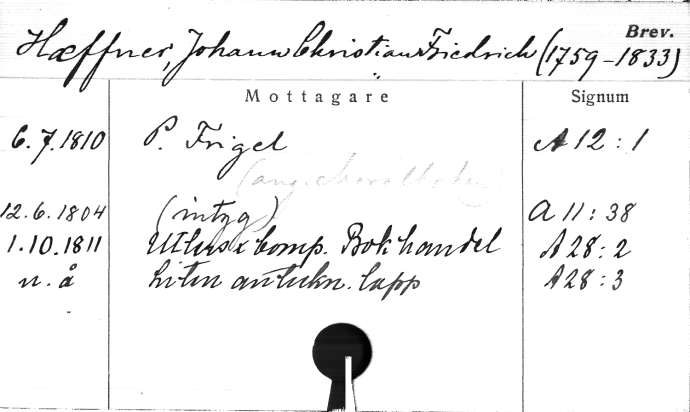 Brev.
Hæffner, Johann Christian Friedrich (1759-1833)
Mottagare Signum
6.7.1810 P. Frigel A 12:1
(ang. Choralboken)
12.6.1804 (intyg) A 11:38
1.10.1811 Utlus & Comp. Bokhandel A 28:2
u. å Liten anteckn. lapp A 28:3